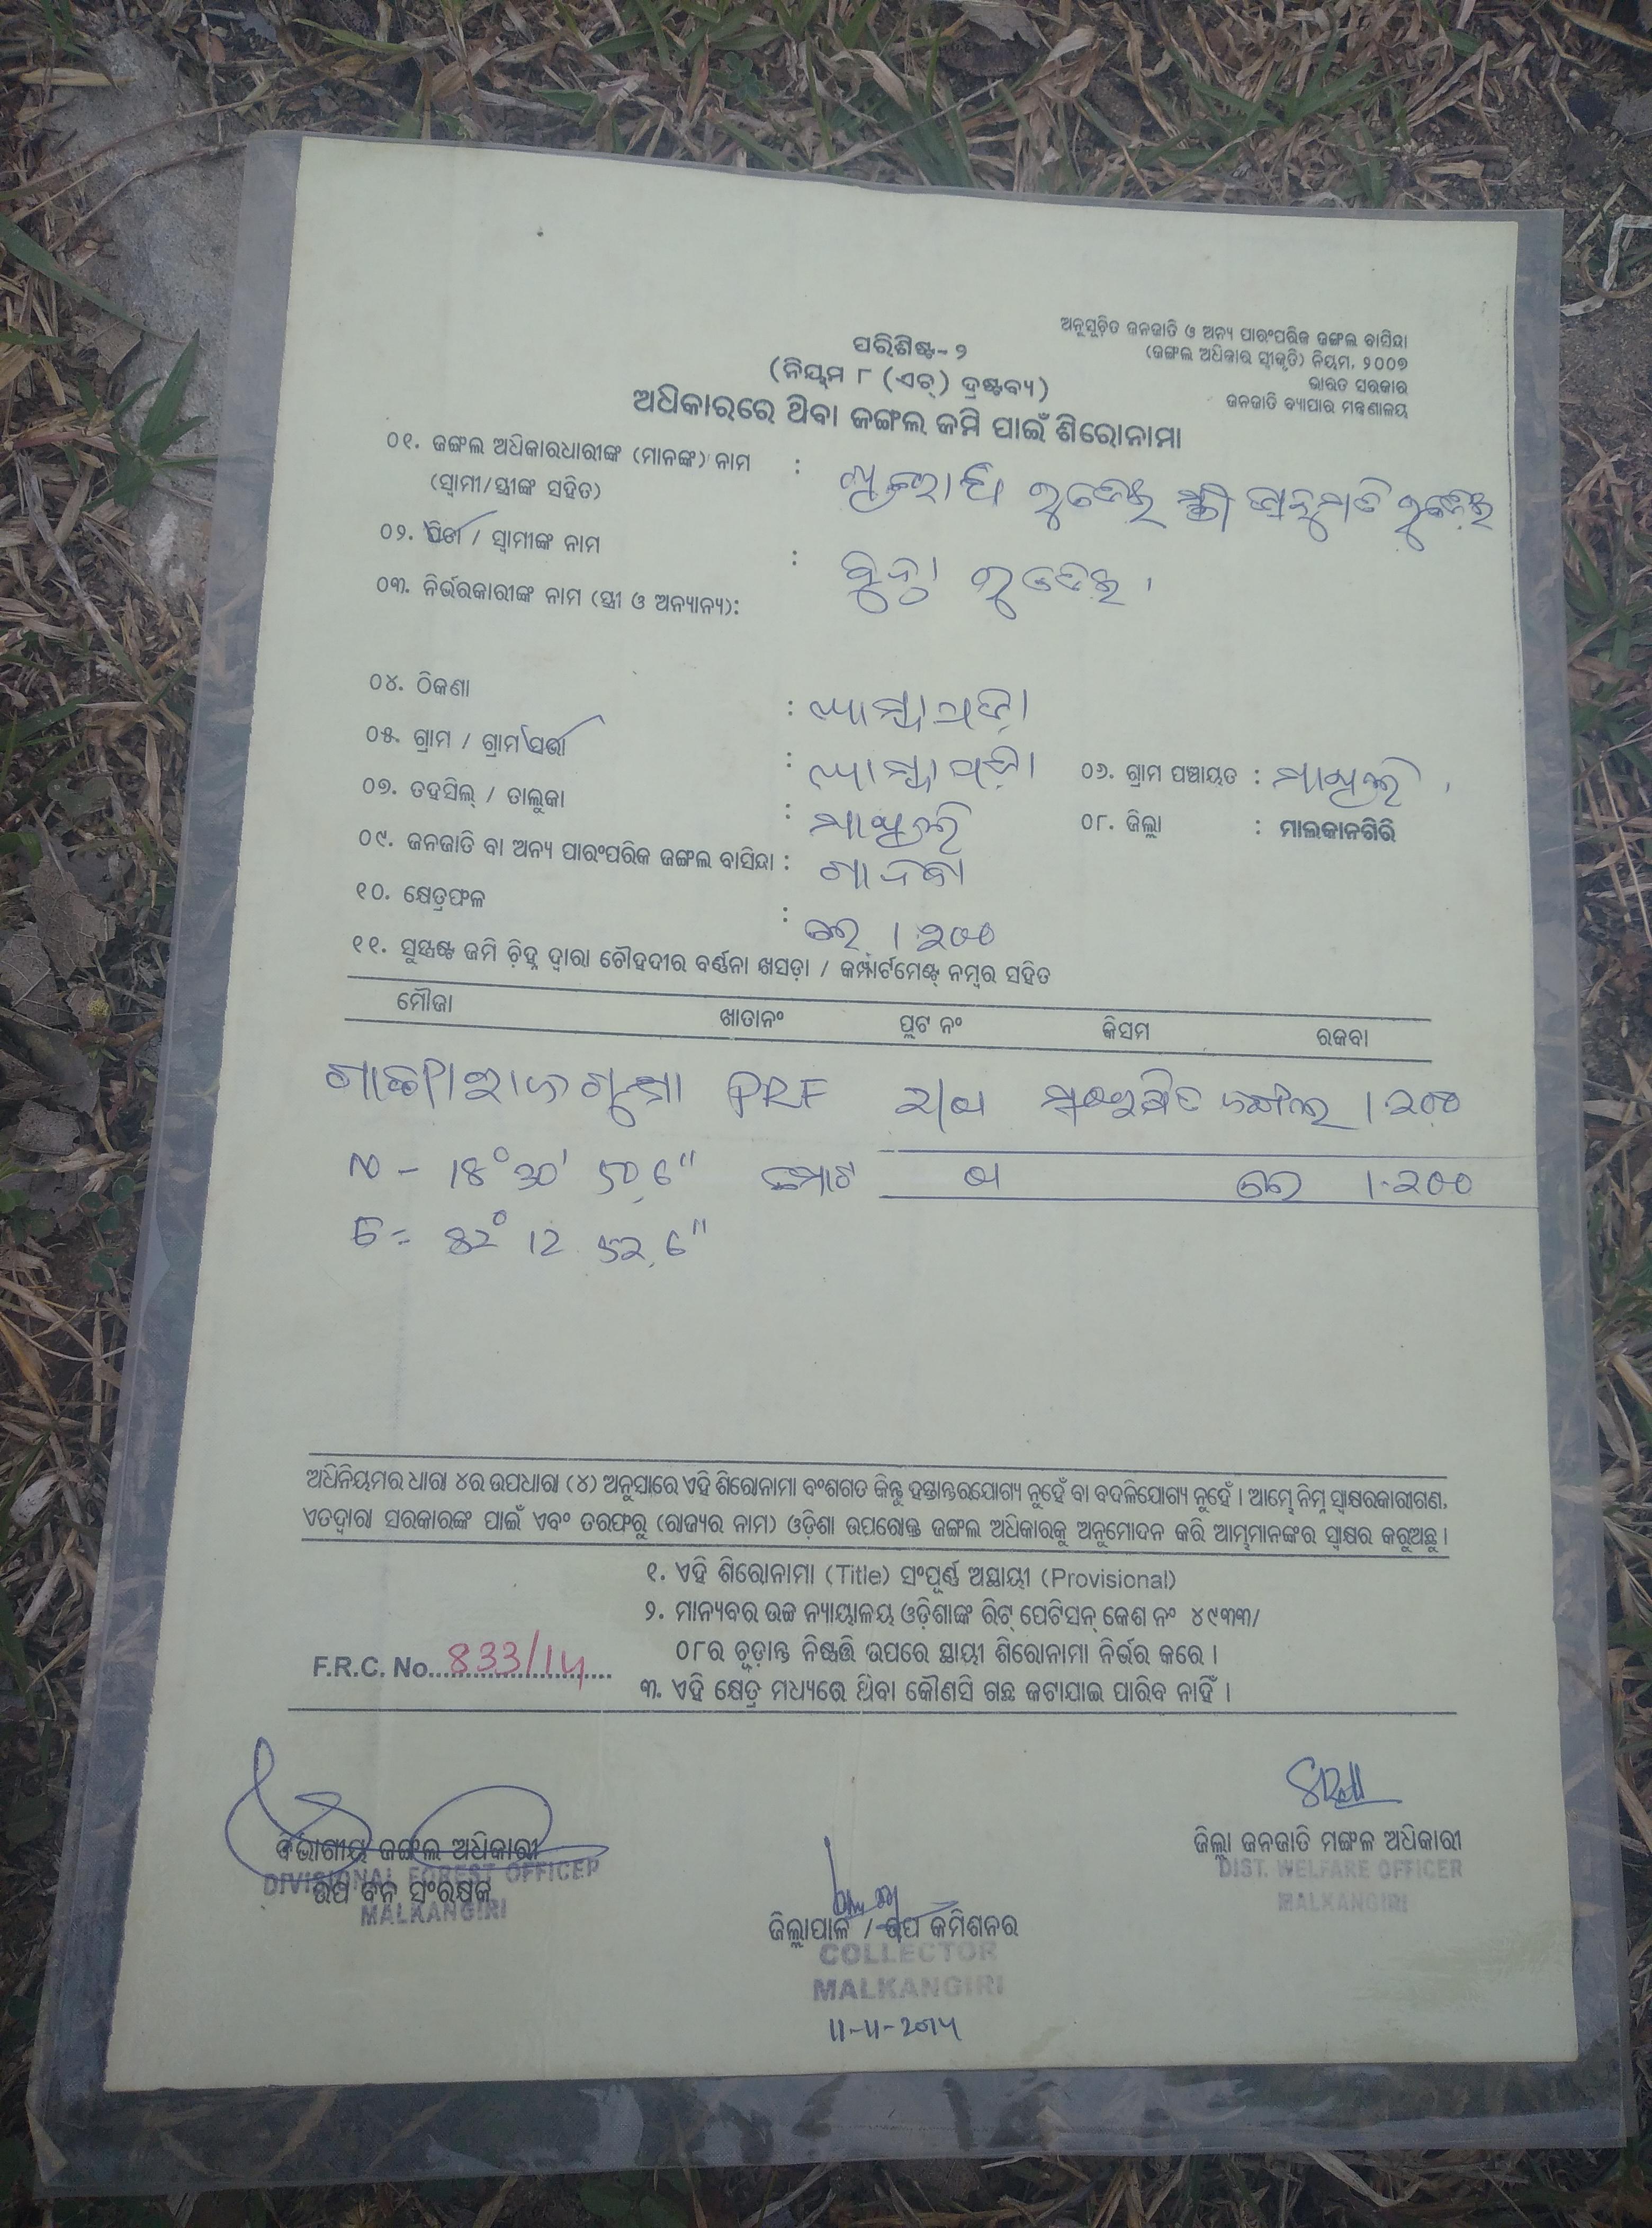 ଅନୁସୂଚିତ ଜନଜାତି ଓ ଅନ୍ୟ ପାରଂପରିକ ଜଙ୍ଗଲ ବାସିନ୍ଦା
(ଜଙ୍ଗଲ ଅଧିକାର ସ୍ୱୀକୃତି) ନିୟମ, ୨୦୦୭
ଭାରତ ସରକାର
ଜନଜାତି ବ୍ୟାପାର ମନ୍ତ୍ରଣାଳୟ
ପରିଶିଷ୍ଟ-୨
(ନିୟମ ୮ (ଏଚ୍) ଦ୍ରଷ୍ଟବ୍ୟ)
ଅଧିକାରରେ ଥିବା ଜଙ୍ଗଲ ଜମି ପାଇଁ ଶିରୋନାମା
୦୧. ଜଙ୍ଗଲ ଅଧିକାରଧାରୀଙ୍କ (ମାନଙ୍କ) ନାମ :
(ସ୍ୱାମୀ/ସ୍ତ୍ରୀଙ୍କ ସହିତ)
୦୨. ପିତା / ସ୍ୱାମୀଙ୍କ ନାମ :
୦୩. ନିର୍ଭରକାରୀଙ୍କ ନାମ (ସ୍ତ୍ରୀ ଓ ଅନ୍ୟାନ୍ୟ):
୦୪. ଠିକଣା :
୦୫. ଗ୍ରାମ / ଗ୍ରାମସଭା : ୦୬. ଗ୍ରାମ ପଞ୍ଚାୟତ : ମାଥିଲି
୦୭. ତହସିଲ୍ / ତାଲୁକା : ମାଥିଲି ୦୮. ଜିଲ୍ଲା : ମାଲକାନଗିରି
୦୯. ଜନଜାତି ବା ଅନ୍ୟ ପାରଂପରିକ ଜଙ୍ଗଲ ବାସିନ୍ଦା : ଗାଦବା
୧୦. କ୍ଷେତ୍ରଫଳ : ହେ 1.200
୧୧. ସୁସ୍ପଷ୍ଟ ଜମି ଚିହ୍ନ ଦ୍ୱାରା ଚୌହଦୀର ବର୍ଣ୍ଣନା ଖସଡ଼ା / କମ୍ପାର୍ଟମେଣ୍ଟ୍ ନମ୍ବର ସହିତ
ମୌଜା ଖାତାନଂ ପ୍ଲଟ ନଂ କିସମ ରକବା
PRF ସଂରକ୍ଷିତ ଜଙ୍ଗଲ 1.200
N - 18° 30' 50.6" ମୋଟ ହେ 1.200
E = 82° 12 52.6"
ଅଧିନିୟମର ଧାରା ୪ର ଉପଧାରା (୪) ଅନୁସାରେ ଏହି ଶିରୋନାମା ବଂଶଗତ କିନ୍ତୁ ହସ୍ତାନ୍ତରଯୋଗ୍ୟ ନୁହେଁ ବା ବଦଳିଯୋଗ୍ୟ ନୁହେଁ । ଆମ୍ଭେ ନିମ୍ନ ସ୍ୱାକ୍ଷରକାରୀଗଣ,
ଏତଦ୍ୱାରା ସରକାରଙ୍କ ପାଇଁ ଏବଂ ତରଫରୁ (ରାଜ୍ୟର ନାମ) ଓଡ଼ିଶା ଉପରୋକ୍ତ ଜଙ୍ଗଲ ଅଧିକାରକୁ ଅନୁମୋଦନ କରି ଆମ୍ଭମାନଙ୍କର ସ୍ୱାକ୍ଷର କରୁଅଛୁ ।
୧. ଏହି ଶିରୋନାମା (Title) ସଂପୂର୍ଣ୍ଣ ଅସ୍ଥାୟୀ (Provisional)
୨. ମାନ୍ୟବର ଉଚ୍ଚ ନ୍ୟାୟାଳୟ ଓଡ଼ିଶାଙ୍କ ରିଟ୍ ପେଟିସନ୍ କେଶ ନଂ ୪୯୩୩/
୦୮ର ଚୂଡ଼ାନ୍ତ ନିଷ୍ପତ୍ତି ଉପରେ ସ୍ଥାୟୀ ଶିରୋନାମା ନିର୍ଭର କରେ ।
F.R.C. No. 833/14
୩. ଏହି କ୍ଷେତ୍ର ମଧ୍ୟରେ ଥିବା କୌଣସି ଗଛ କଟାଯାଇ ପାରିବ ନାହିଁ ।
ବିଭାଗୀୟ ଜଙ୍ଗଲ ଅଧିକାରୀ
DIVISIONAL FOREST OFFICER
ଉପ ବନ ସଂରକ୍ଷକ
MALKANGIRI
ଜିଲ୍ଲା ଜନଜାତି ମଙ୍ଗଳ ଅଧିକାରୀ
DIST. WELFARE OFFICER
MALKANGIRI
ଜିଲ୍ଲାପାଳ / ଉପ କମିଶନର
COLLECTOR
MALKANGIRI